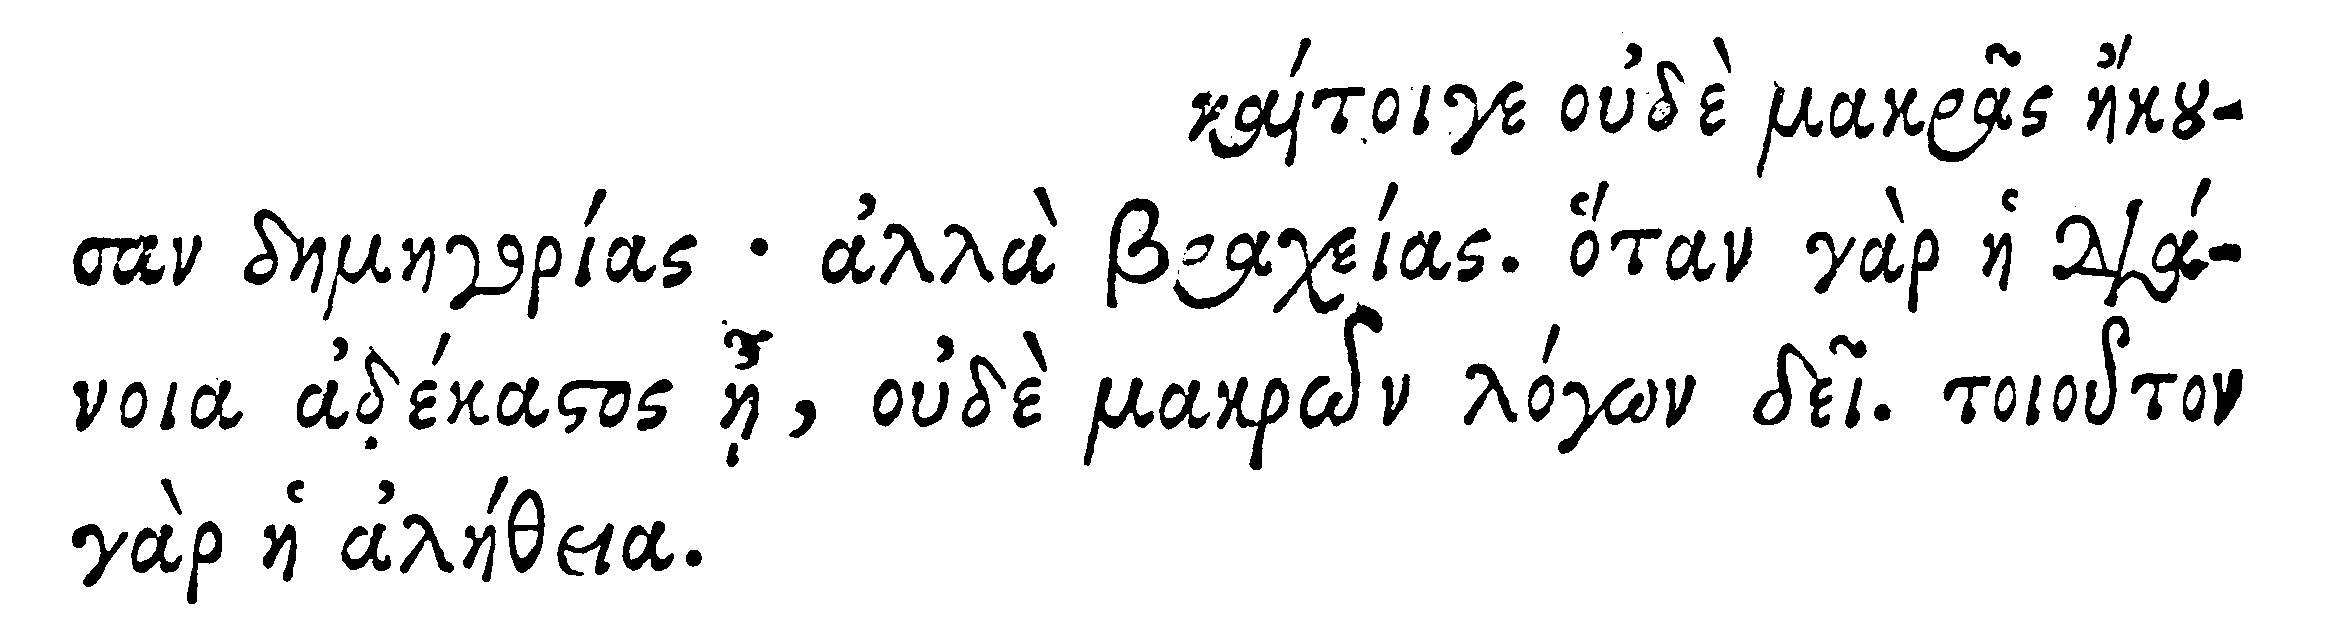 καίτοιγε οὐδὲ μακρᾶς ἤκου-
σαν δημηγορίας · ἀλλὰ βραχείας. ὅταν γὰρ ἡ διά-
νοια ἀδέκαστος ᾖ, οὐδὲ μακρῶν λόγων δεῖ. τοιοῦτον
γὰρ ἡ ἀλήθεια.